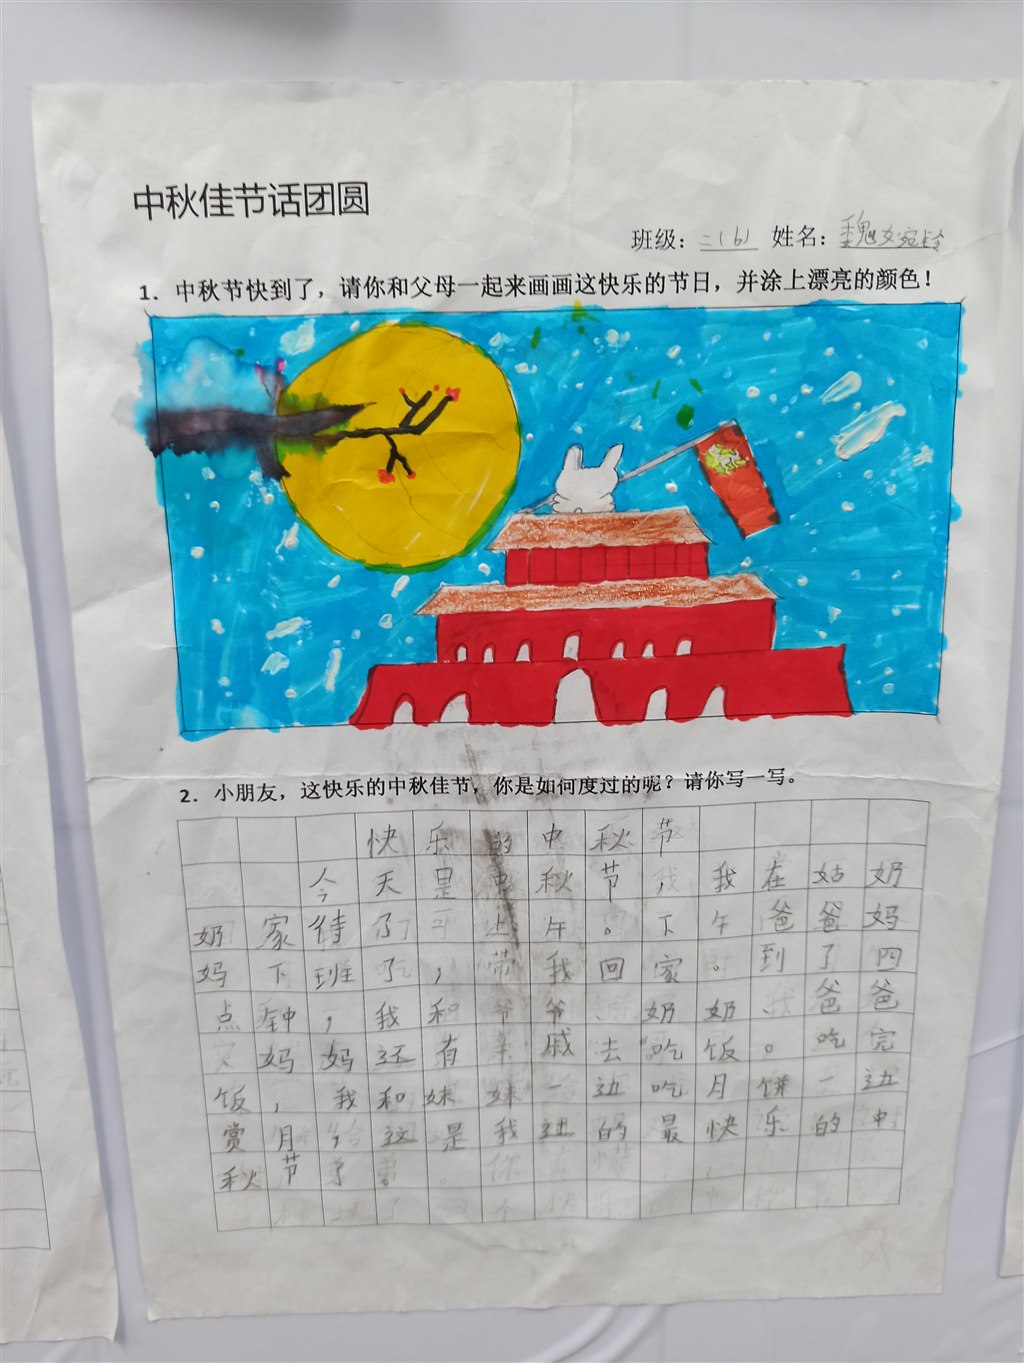 中秋佳节话团圆
班级：二（6） 姓名：魏女宛玲
1. 中秋节快到了，请你和父母一起来画画这快乐的节日，并涂上漂亮的颜色！
2. 小朋友，这快乐的中秋佳节，你是如何度过的呢？请你写一写。
快乐的中秋节
今天是中秋节，我在姑奶
奶家待了 上午。下午爸爸妈
妈下班了，带我回家。到了四
点钟，我和爷爷、奶奶、爸爸
妈妈还有亲戚去吃饭。吃完
饭，我和妹妹一边吃月饼一边
赏月，这是我过的最快乐的中
秋节了。